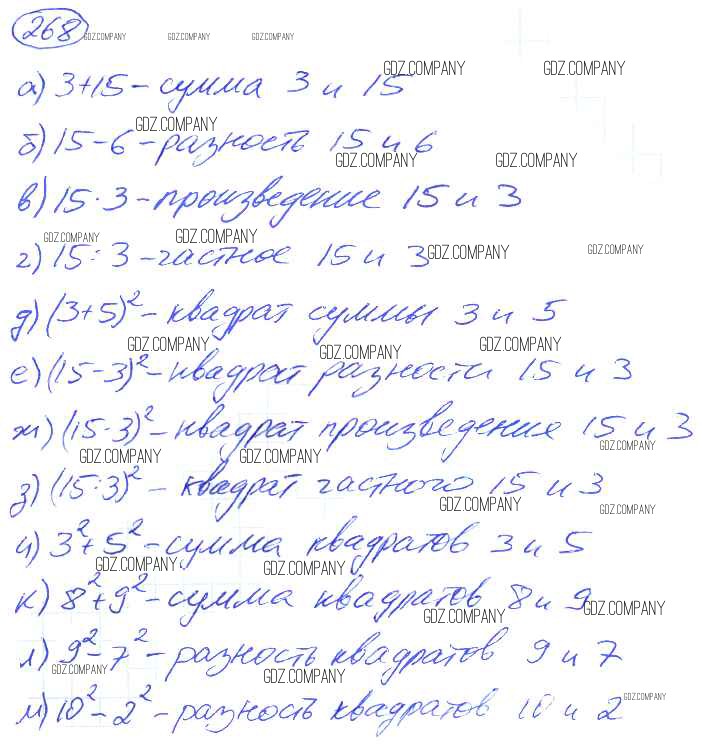 268 GDZ.COMPANY GDZ.COMPANY GDZ.COMPANY
GDZ.COMPANY GDZ.COMPANY
а) 3+15 - сумма 3 и 15
GDZ.COMPANY
б) 15-6 - разность 15 и 6
GDZ.COMPANY GDZ.COMPANY
в) 15·3 - произведение 15 и 3
GDZ.COMPANY GDZ.COMPANY
г) 15:3 - частное 15 и 3 GDZ.COMPANY GDZ.COMPANY
д) (3+5)² - квадрат суммы 3 и 5
GDZ.COMPANY GDZ.COMPANY GDZ.COMPANY
е) (15-3)² - квадрат разности 15 и 3
ж) (15·3)² - квадрат произведения 15 и 3
GDZ.COMPANY GDZ.COMPANY GDZ.COMPANY
з) (15:3)² - квадрат частного 15 и 3
GDZ.COMPANY GDZ.COMPANY
и) 3²+5² - сумма квадратов 3 и 5
GDZ.COMPANY GDZ.COMPANY
к) 8²+9² - сумма квадратов 8 и 9
GDZ.COMPANY GDZ.COMPANY
л) 9²-7² - разность квадратов 9 и 7
GDZ.COMPANY GDZ.COMPANY
м) 10²-2² - разность квадратов 10 и 2
GDZ.COMPANY